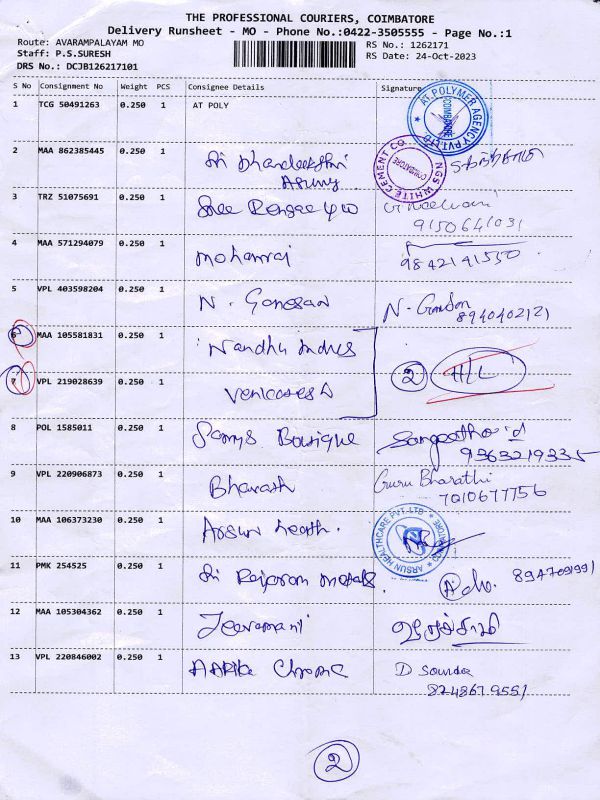 THE PROFESSIONAL COURIERS, COIMBATORE
Delivery Runsheet - MO - Phone No.:0422-3505555 - Page No.:1
Route: AVARAMPALAYAM MO
Staff: P.S.SURESH
DRS No.: DCJB126217101
RS No.: 1262171
RS Date: 24-Oct-2023
S No Consignment No Weight PCS Consignee Details Signature
1 TCG 50491263 0.250 1 AT POLY
AT.POLYMER AGENCY PVT.LTD COIMBATORE
2 MAA 862385445 0.250 1 Sri
NGS WHITE CEMENT CO COIMBATORE
3 TRZ 51075691 0.250 1 Sree
9150641031
4 MAA 571294079 0.250 1 mohanraj
9842141550
5 VPL 403598204 0.250 1 N. Ganesan N-
8940402121
6 MAA 105581831 0.250 1 Nandhu Indus
7 VPL 219028639 0.250 1 Venkatesh 2 H/L
8 POL 1585011 0.250 1 Boutique
9363219335
9 VPL 220906873 0.250 1 Bharath Guru Bharathi
7010677756
10 MAA 106373230 0.250 1 Arsun Health.
ARSUN HEALTHCARE PVT.LTD COIMBATORE
11 PMK 254525 0.250 1 Sri Rajaram Metals.
12 MAA 105304362 0.250 1 Jeevamani
13 VPL 220846002 0.250 1 Chrome D
2